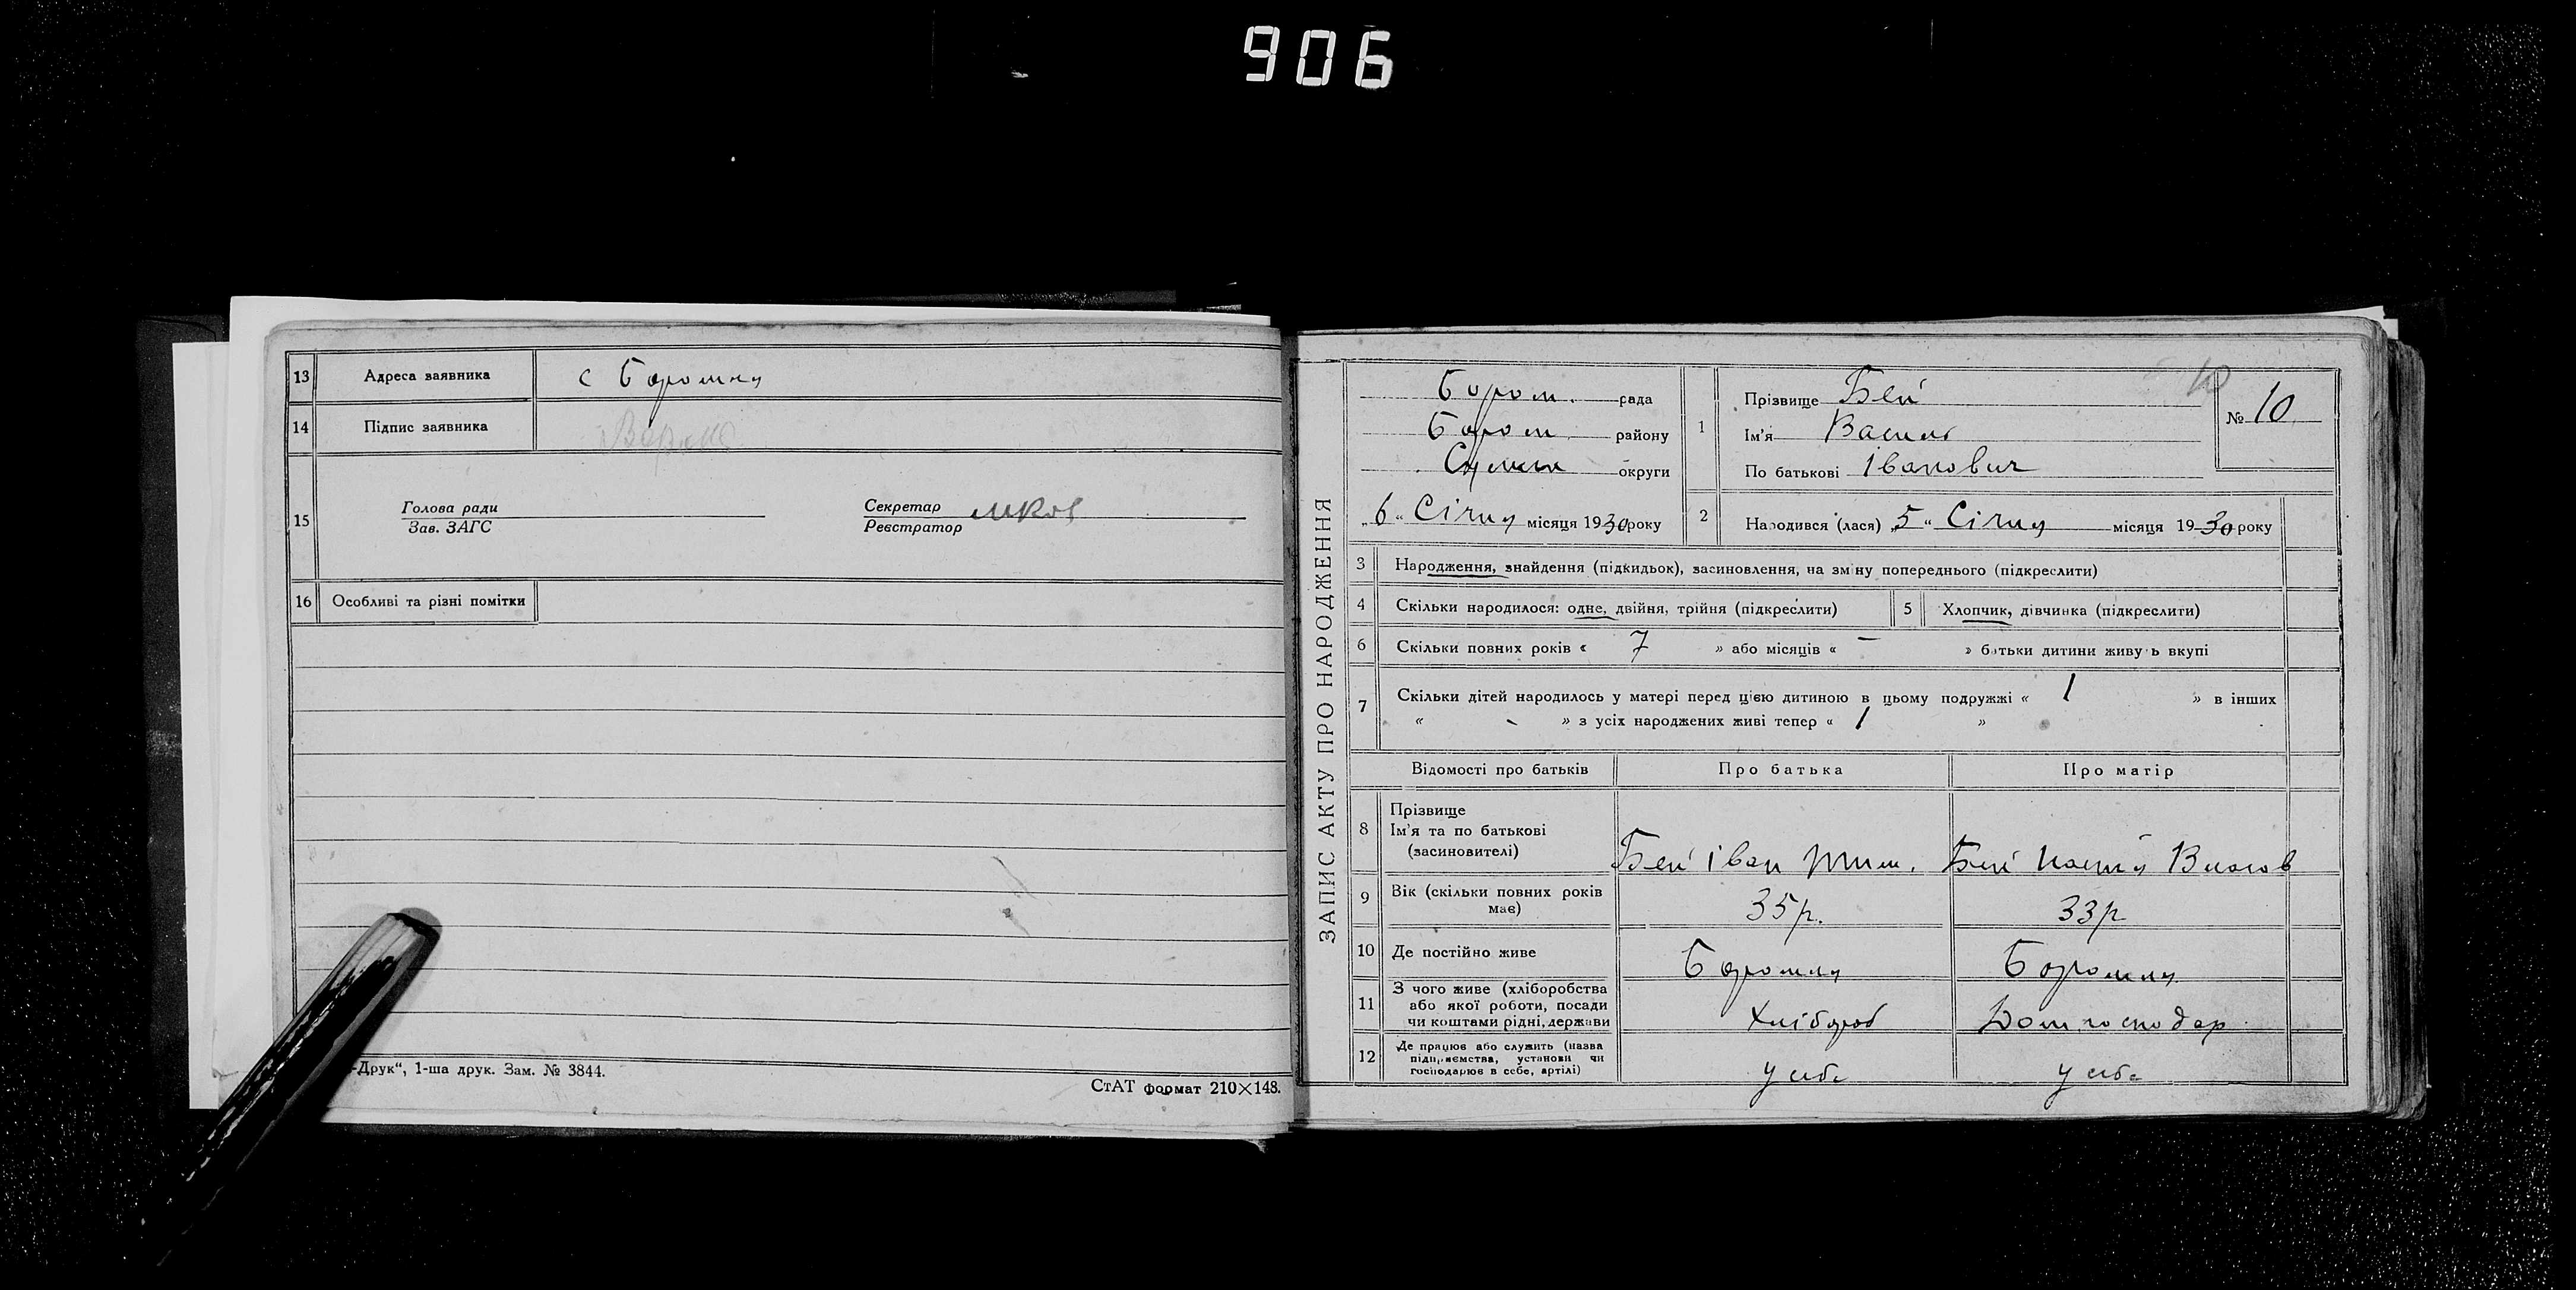 906
13 Адреса заявника с Боромля
14 Підпис заявника
15 Голова ради
Зав. ЗАГС
Секретар
Реєстратор
16 Особливі та різні помітки
-Друк“, 1-ша друк. Зам. № 3844.
СтАТ формат 210×148.
ЗАПИС АКТУ ПРО НАРОДЖЕННЯ
10
Бором. рада
Бором. району
Сумськ округи
„6“ Січня місяця 1930 року
1 Прізвище Бей
Ім'я Василь
По батькові Іванович
№ 10
2 Народився (лася) „5“ Січня місяця 1930 року
3 Народження, знайдення (підкидьок), засиновлення, на зміну попереднього (підкреслити)
4 Скільки народилося: одне, двійня, трійня (підкреслити)
5 Хлопчик, дівчинка (підкреслити)
6 Скільки повних років « 7 » або місяців « – » батьки дитини живуть вкупі
7 Скільки дітей народилось у матері перед цією дитиною в цьому подружжі « 1 » в інших
« - » з усіх народжених живі тепер « 1 »
Відомості про батьків Про батька Про матір
8 Прізвище
Ім'я та по батькові
(засиновителі)
Бей Іван Тим. Бей Настя Власов
9 Вік (скільки повних років
має)
35 р. 33 р
10 Де постійно живе Боромля Боромля
11 З чого живе (хліборобства
або якої роботи, посади
чи коштами рідні, держави
Хлібороб Домгосподар
12 Де працює або служить (назва
підприємства, установи чи
господарює в себе, артілі)
у себе у себе